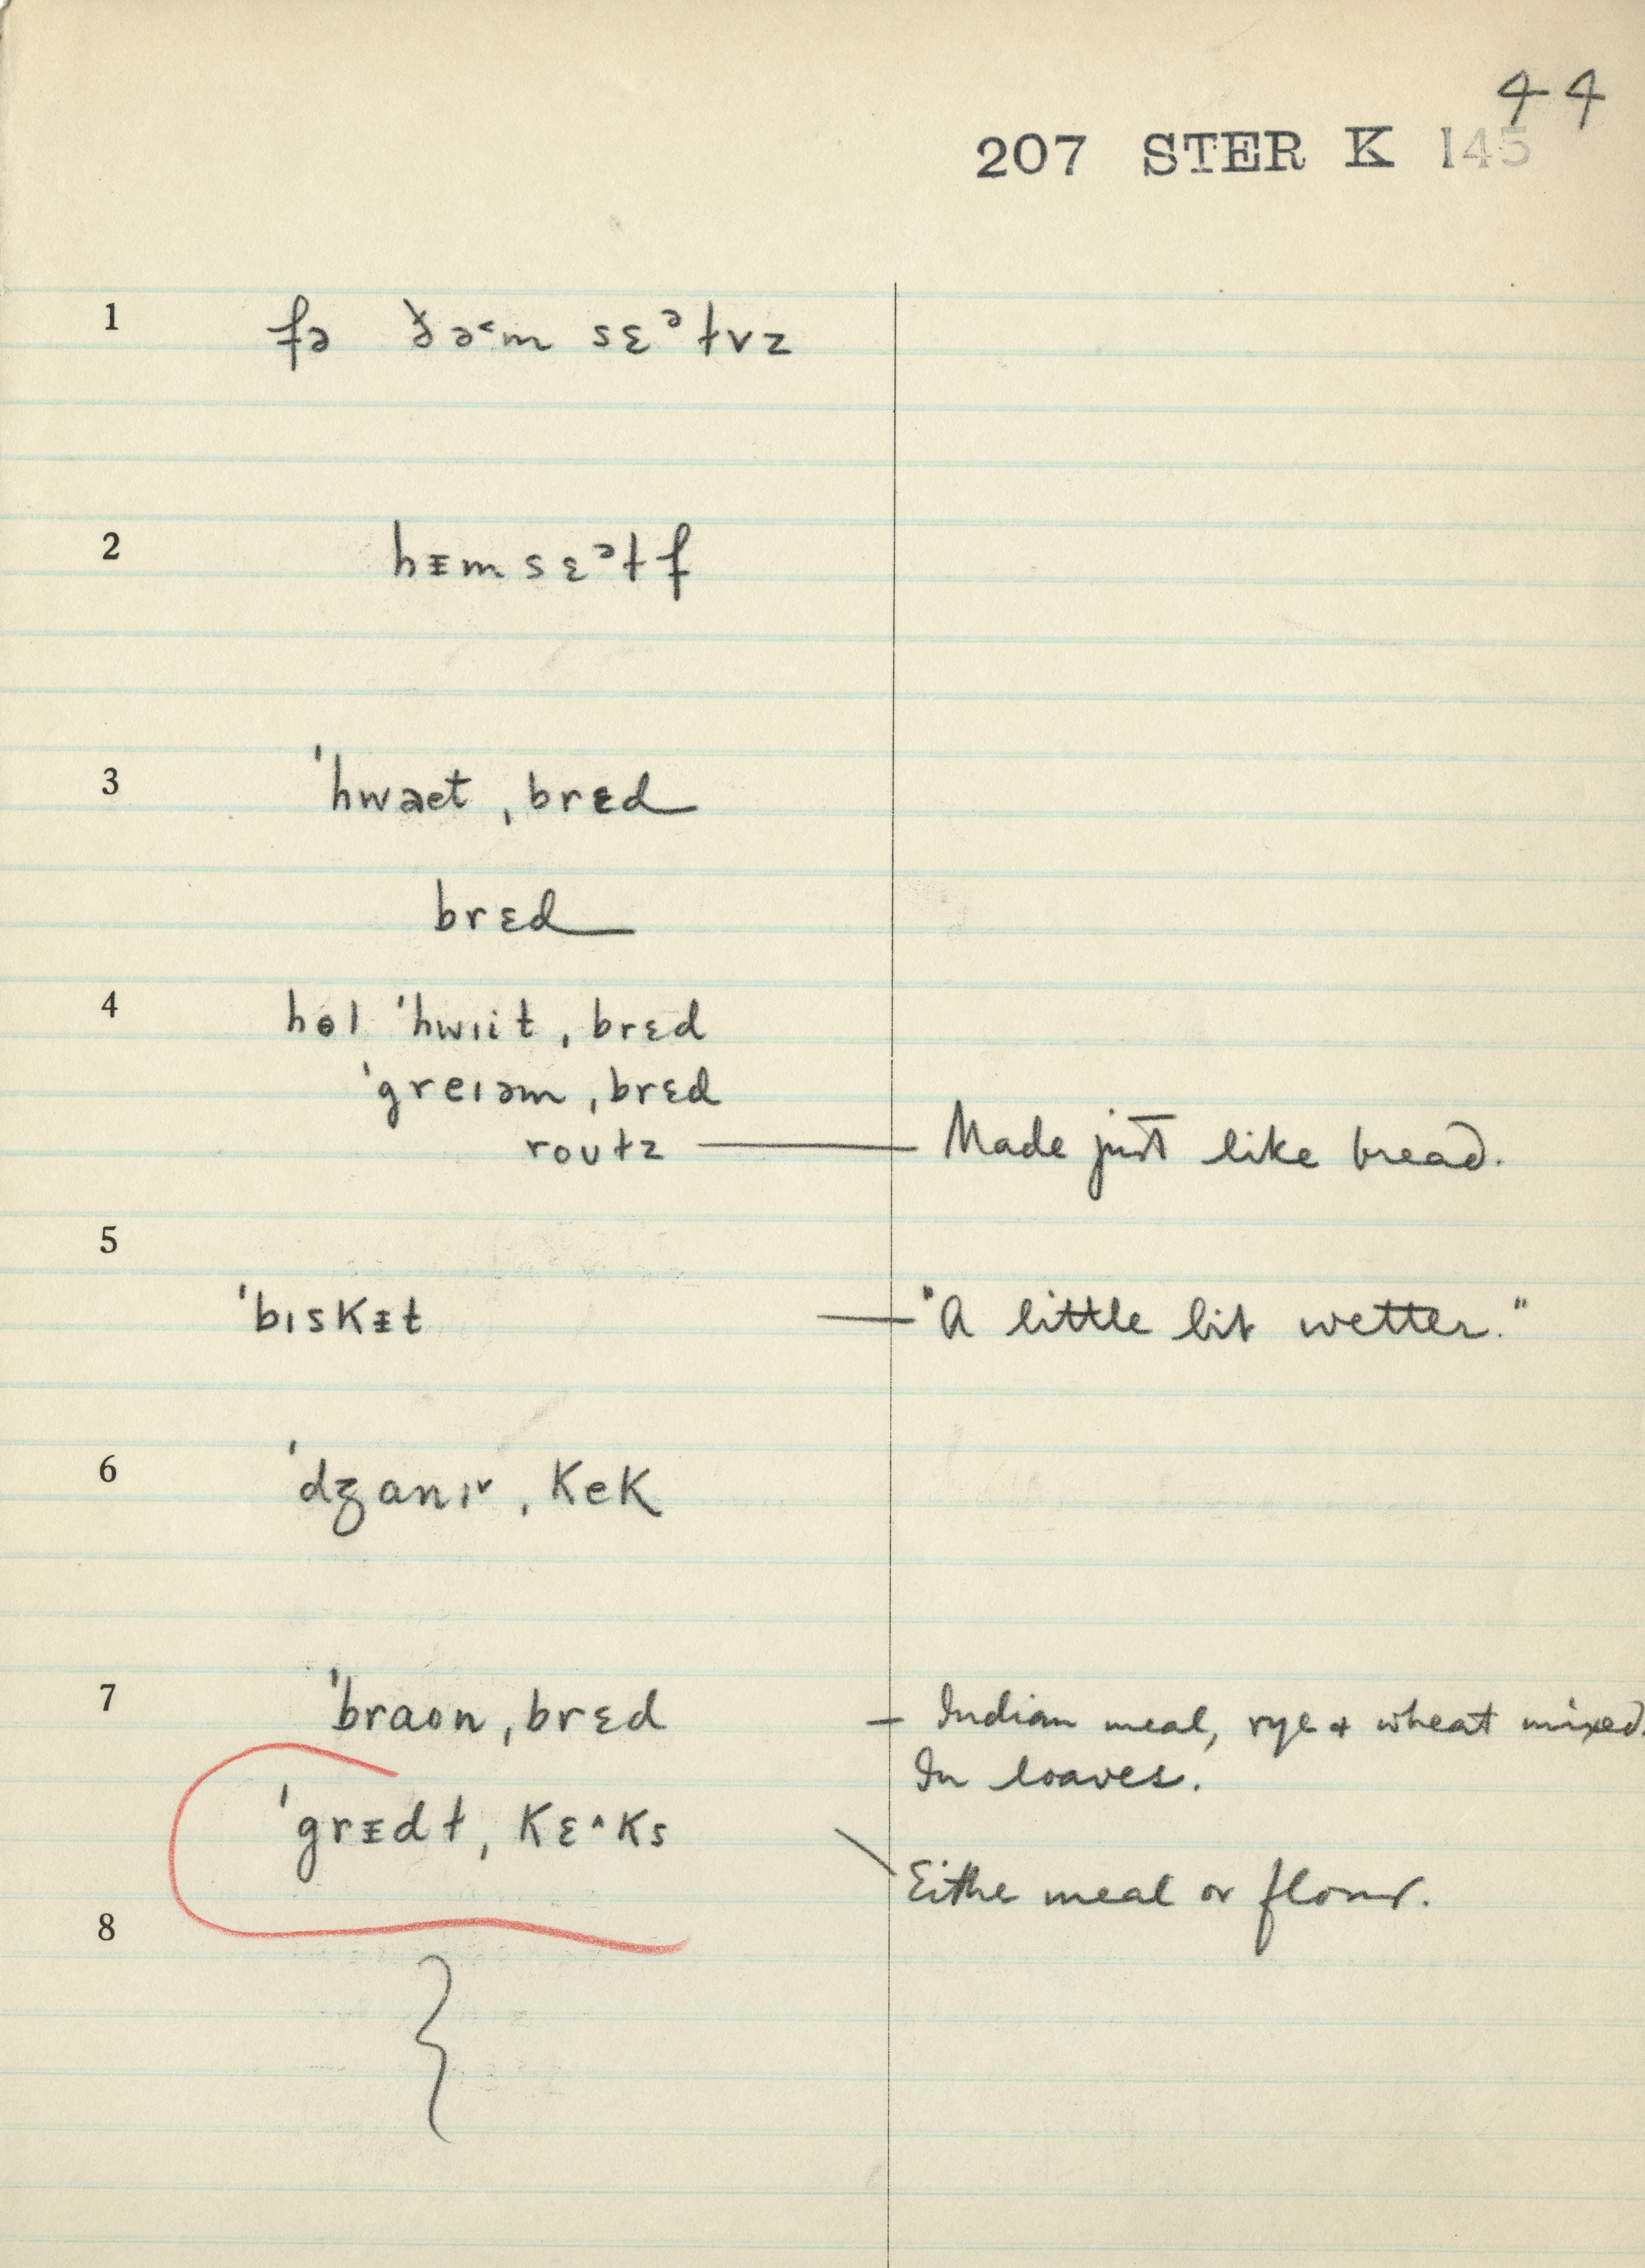 44
207 STER K 145
1 fə ð̵ə˂m sɛᵊɫvz
2 hᵻmsɛᵊɫf
3 ˈhwaet ˌbrɛd
brɛd
4 hɵl ˈhwɪit ˌbrɛd
ˈgreɪəm ˌbrɛd
roʊɫz — Made just like bread.
5
ˈbɪskᵻt — "A little bit wetter."
6 ˈdʒanɪ˅ ˌkek
7 ˈbraon ˌbrɛd — Indian meal, rye + wheat mixed.
In loaves.
ˈgrᵻdɫ ˌkɛ˄ks
Eithe meal or flour.
8